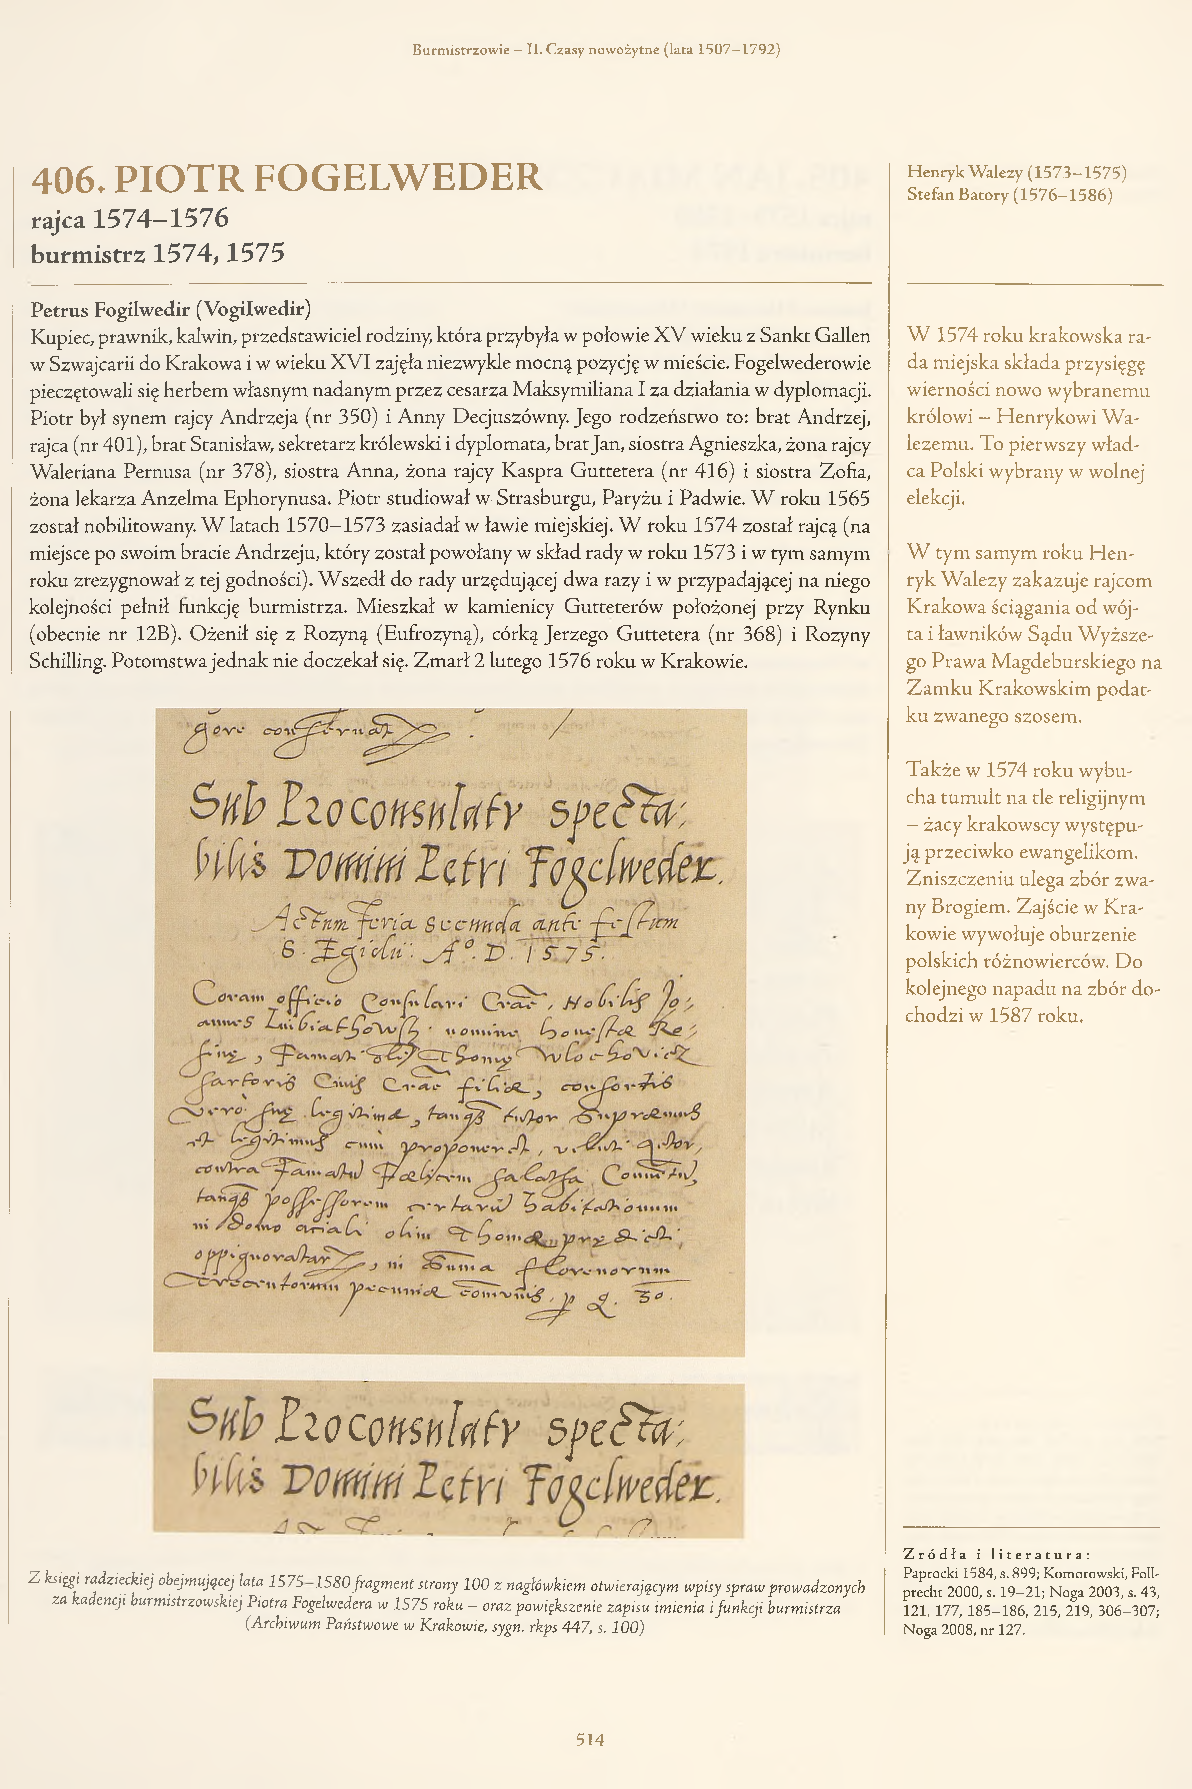 Burmistrzowie – II. Czasy nowożytne (lata 1507–1792)
406. PIOTR FOGELWEDER
rajca 1574–1576
burmistrz 1574, 1575
Petrus Fogilwedir (Vogilwedir)
Kupiec, prawnik, kalwin, przedstawiciel rodziny, która przybyła w połowie XV wieku z Sankt Gallen
w Szwajcarii do Krakowa i w wieku XVI zajęła niezwykle mocną pozycję w mieście. Fogelwederowie
pieczętowali się herbem własnym nadanym przez cesarza Maksymiliana I za działania w dyplomacji.
Piotr był synem rajcy Andrzeja (nr 350) i Anny Decjuszówny. Jego rodzeństwo to: brat Andrzej,
rajca (nr 401), brat Stanisław, sekretarz królewski i dyplomata, brat Jan, siostra Agnieszka, żona rajcy
Waleriana Pernusa (nr 378), siostra Anna, żona rajcy Kaspra Guttetera (nr 416) i siostra Zofia,
żona lekarza Anzelma Ephorynusa. Piotr studiował w Strasburgu, Paryżu i Padwie. W roku 1565
został nobilitowany. W latach 1570–1573 zasiadał w ławie miejskiej. W roku 1574 został rajcą (na
miejsce po swoim bracie Andrzeju, który został powołany w skład rady w roku 1573 i w tym samym
roku zrezygnował z tej godności). Wszedł do rady urzędującej dwa razy i w przypadającej na niego
kolejności pełnił funkcję burmistrza. Mieszkał w kamienicy Gutteterów położonej przy Rynku
(obecnie nr 12B). Ożenił się z Rozyną (Eufrozyną), córką Jerzego Guttetera (nr 368) i Rozyny
Schilling. Potomstwa jednak nie doczekał się. Zmarł 2 lutego 1576 roku w Krakowie.
Sub Proconsulatu specta:
bilis Domini Petri Fogelweder.
Actum feria secunda ante festum
S. Egidii. A°. D. 1575.
Coram officio Consulari Crac̄, Nobilis Jo:
nomine honestæ Re:
sartoris Civis Crac̄ filiæ, consortis
vero suę legitimæ, tanq̄ tutor Supræmus
et legitimus cum proponeret,
contra
tanq̄ possessorem certarū habitationum
in domo olim Thomæ prędicti,
in Suma florenorum
trecentorum pecuniæ 30.
Sub Proconsulatu specta:
bilis Domini Petri Fogelweder.
Z księgi radzieckiej obejmującej lata 1575–1580 fragment strony 100 z nagłówkiem otwierającym wpisy spraw prowadzonych
za kadencji burmistrzowskiej Piotra Fogelwedera w 1575 roku – oraz powiększenie zapisu imienia i funkcji burmistrza
(Archiwum Państwowe w Krakowie, sygn. rkps 447, s. 100)
Henryk Walezy (1573–1575)
Stefan Batory (1576–1586)
W 1574 roku krakowska ra-
da miejska składa przysięgę
wierności nowo wybranemu
królowi – Henrykowi Wa-
lezemu. To pierwszy wład-
ca Polski wybrany w wolnej
elekcji.
W tym samym roku Hen-
ryk Walezy zakazuje rajcom
Krakowa ściągania od wój-
ta i ławników Sądu Wyższe-
go Prawa Magdeburskiego na
Zamku Krakowskim podat-
ku zwanego szosem.
Także w 1574 roku wybu-
cha tumult na tle religijnym
– żacy krakowscy występu-
ją przeciwko ewangelikom.
Zniszczeniu ulega zbór zwa-
ny Brogiem. Zajście w Kra-
kowie wywołuje oburzenie
polskich różnowierców. Do
kolejnego napadu na zbór do-
chodzi w 1587 roku.
Źródła i literatura:
Paprocki 1584, s. 899; Komorowski, Foll-
precht 2000, s. 19–21; Noga 2003, s. 43,
121, 177, 185–186, 215, 219, 306–307;
Noga 2008, nr 127.
514